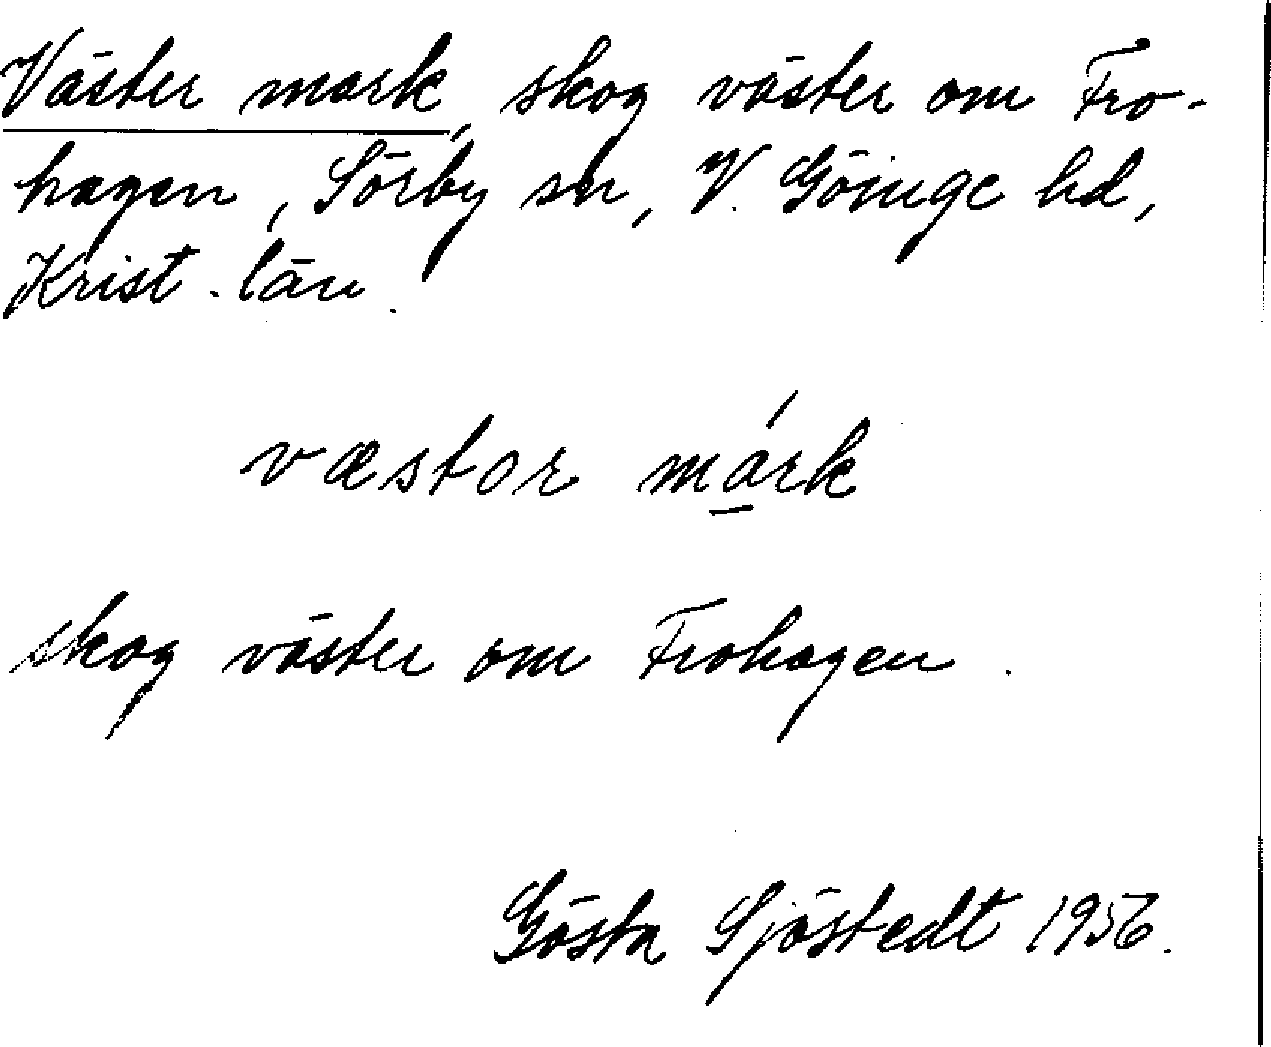 Väster mark, skog väster om Fro-
hagen, Sörby sn, V. Göinge hd,
Krist. län.
væstor márk
skog väster om Frohagen.
Gösta Sjöstedt 1956.